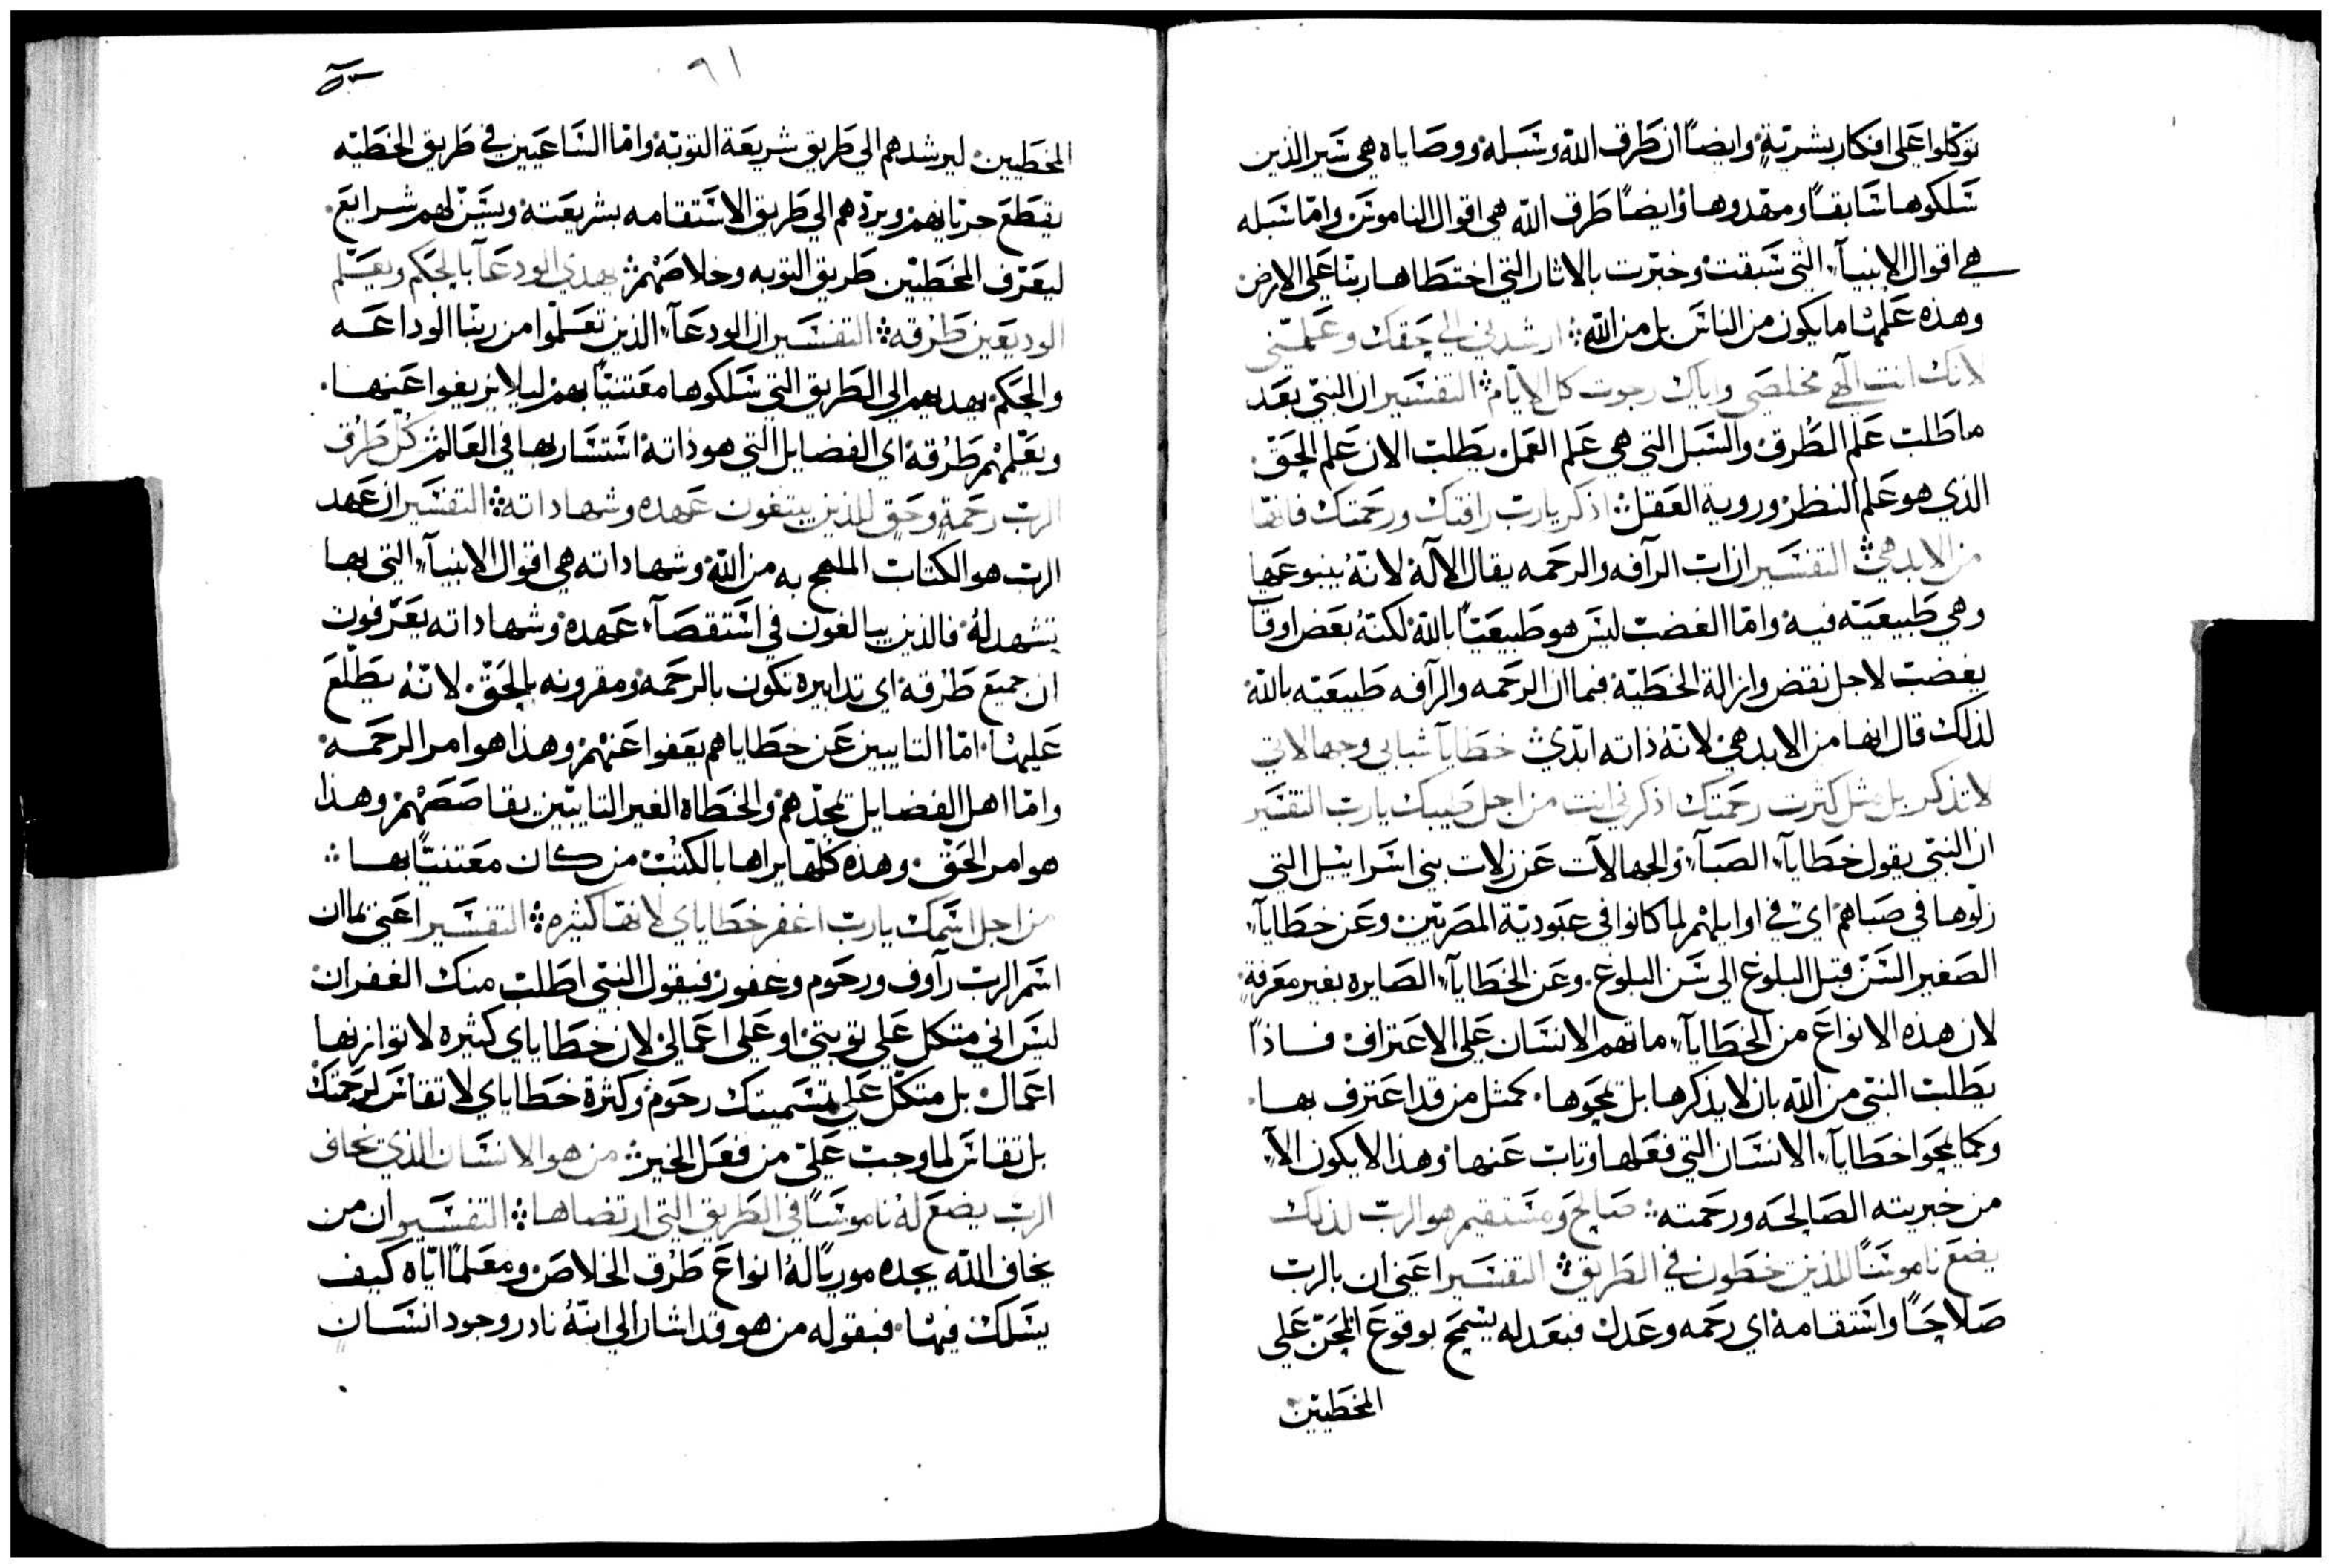 توكلوا على افكار بشريةٍ وايضاً ان طرق الله وسبله ووصاياه هي سير الذين
سلكوها سابقاً ومهّدوها وايضاً طرق الله هي اقوال الناموس واما سبله
هي اقوال الانبيآء التي سبقت وخبرت بالاثار التي اختطاها ربنا على الارض
وهذه علمها ما يكون من الناس بل من الله ارشدني الي حقك وعلمني
لانك انت الهي مخلصي واياك رجوت كل الايام التفسير ان النبي بعد
ما طلب علم الطرق والسبل التي هي علم العمل يطلب الان علم الحق
الذي هو علم النظر وروية العقل اذكر يارب رافتك ورحمتك فانها
من الابد هي التفسير ان اب الرآفه والرحمه يقال الاله لانه ينبوعها
وهي طبيعيه فيه واما الغضب ليس هو طبيعيًا بالله لكنه بعض اوقات
يغضب لاجل نقض وازالة الخطيه فبما ان الرحمه والرآفه طبيعيه بالله
لذلك قال انها من الابد هي لانه ذاته ابدي خطايا شبابي وجهالاتي
لا تذكر بل مثل كثرت رحمتك اذكرني انت من اجل طيبك يارب التفسير
ان النبي يقول خطايآء الصبآء والجهالات عن زلات بني اسراييل التي
زلوها في صباهم اي في اوايلهم لما كانوا في عبودية المصريين وعن خطايآء
الصغير السن قبل البلوغ الى سن البلوغ وعن الخطايآء الصايره بغير معرفةٍ
لان هذه الانواع من الخطايآء ما تهم الانسان على الاعتراف فاذاً
يطلب النبي من الله بان لا يذكرها بل يمحوها كمثل من قد اعترف بها
وكما يمحوا خطايآء الانسان التي فعلها وتاب عنها وهذا لا يكون الا
من خيريته الصالحه ورحمته صالح ومستقيم هو الرب لذلك
يضع ناموسًا للذين يخطون في الطريق التفسير اعني ان بالرب
صلاحًا واستقامه اي رحمه وعدل فبعدله يسمح بوقوع المحن على
المخطيين
٦١
المخطيين ليرشدهم الي طريق شريعة التوبه واما الساعيين في طريق الخطيه
يقطع جريانهم ويردهم الي طريق الاستقامه بشريعته ويسن لهم شرايع
ليعرف المخطيين طريق التوبه وخلاصهم يهدي الودعآ بالحكم ويعلم
الوديعين طرقه التفسير ان الودعآء الذين تعلموا من ربنا الوداعه
والحكم يهديهم الي الطريق التي سلكوها معتنيًا بهم ليلا يزيغوا عنها
ويعلمهم طرقه اي الفضايل التي هو ذاته استسار بها في العالم كل طرق
الرب رحمةٍ وحقٍ للذين يبتغون عهده وشهاداته التفسير ان عهد
الرب هو الكتاب الملهج به من الله وشهاداته هي اقوال الانبيآء التي بها
تشهد له فالذين يبالغون في استقصآء عهده وشهاداته يعرفون
ان جميع طرقه اي تدابيره تكون بالرحمه ومقرونه بالحق لانه يطلع
عليها اما التايبين عن خطاياهم يعفوا عنهم وهذا هو امر الرحمه
واما اهل الفضايل يمجدهم والخطاه الغير التايبين يقاصصهم وهذا
هو امر الحق وهذه كلها يراها بالكتب من كان معتنيًا بها
من اجل اسمك يارب اغفر خطاياي لانها كثيره التفسير اعني بما ان
اسم الرب رآوف ورحوم وغفور فيقول النبي اطلب منك الغفران
ليس اني متكل على توبتي او على اعمالي لان خطاياي كثيره لا توازنها
اعمال بل متكل على تسميتك رحوم وكثرة خطاياي لا تقاس لرحمتك
بل تقاس لما وجب علي من فعل الخير من هو الانسان الذي يخاف
الرب يضع له ناموسًا في الطريق التي ارتضاها التفسير ان من
يخاف الله يجده موريًا له انواع طرق الخلاص ومعلمًا اياه كيف
يسلك فيها فبقوله من هو قد اشار الى انه نادر وجود انسان